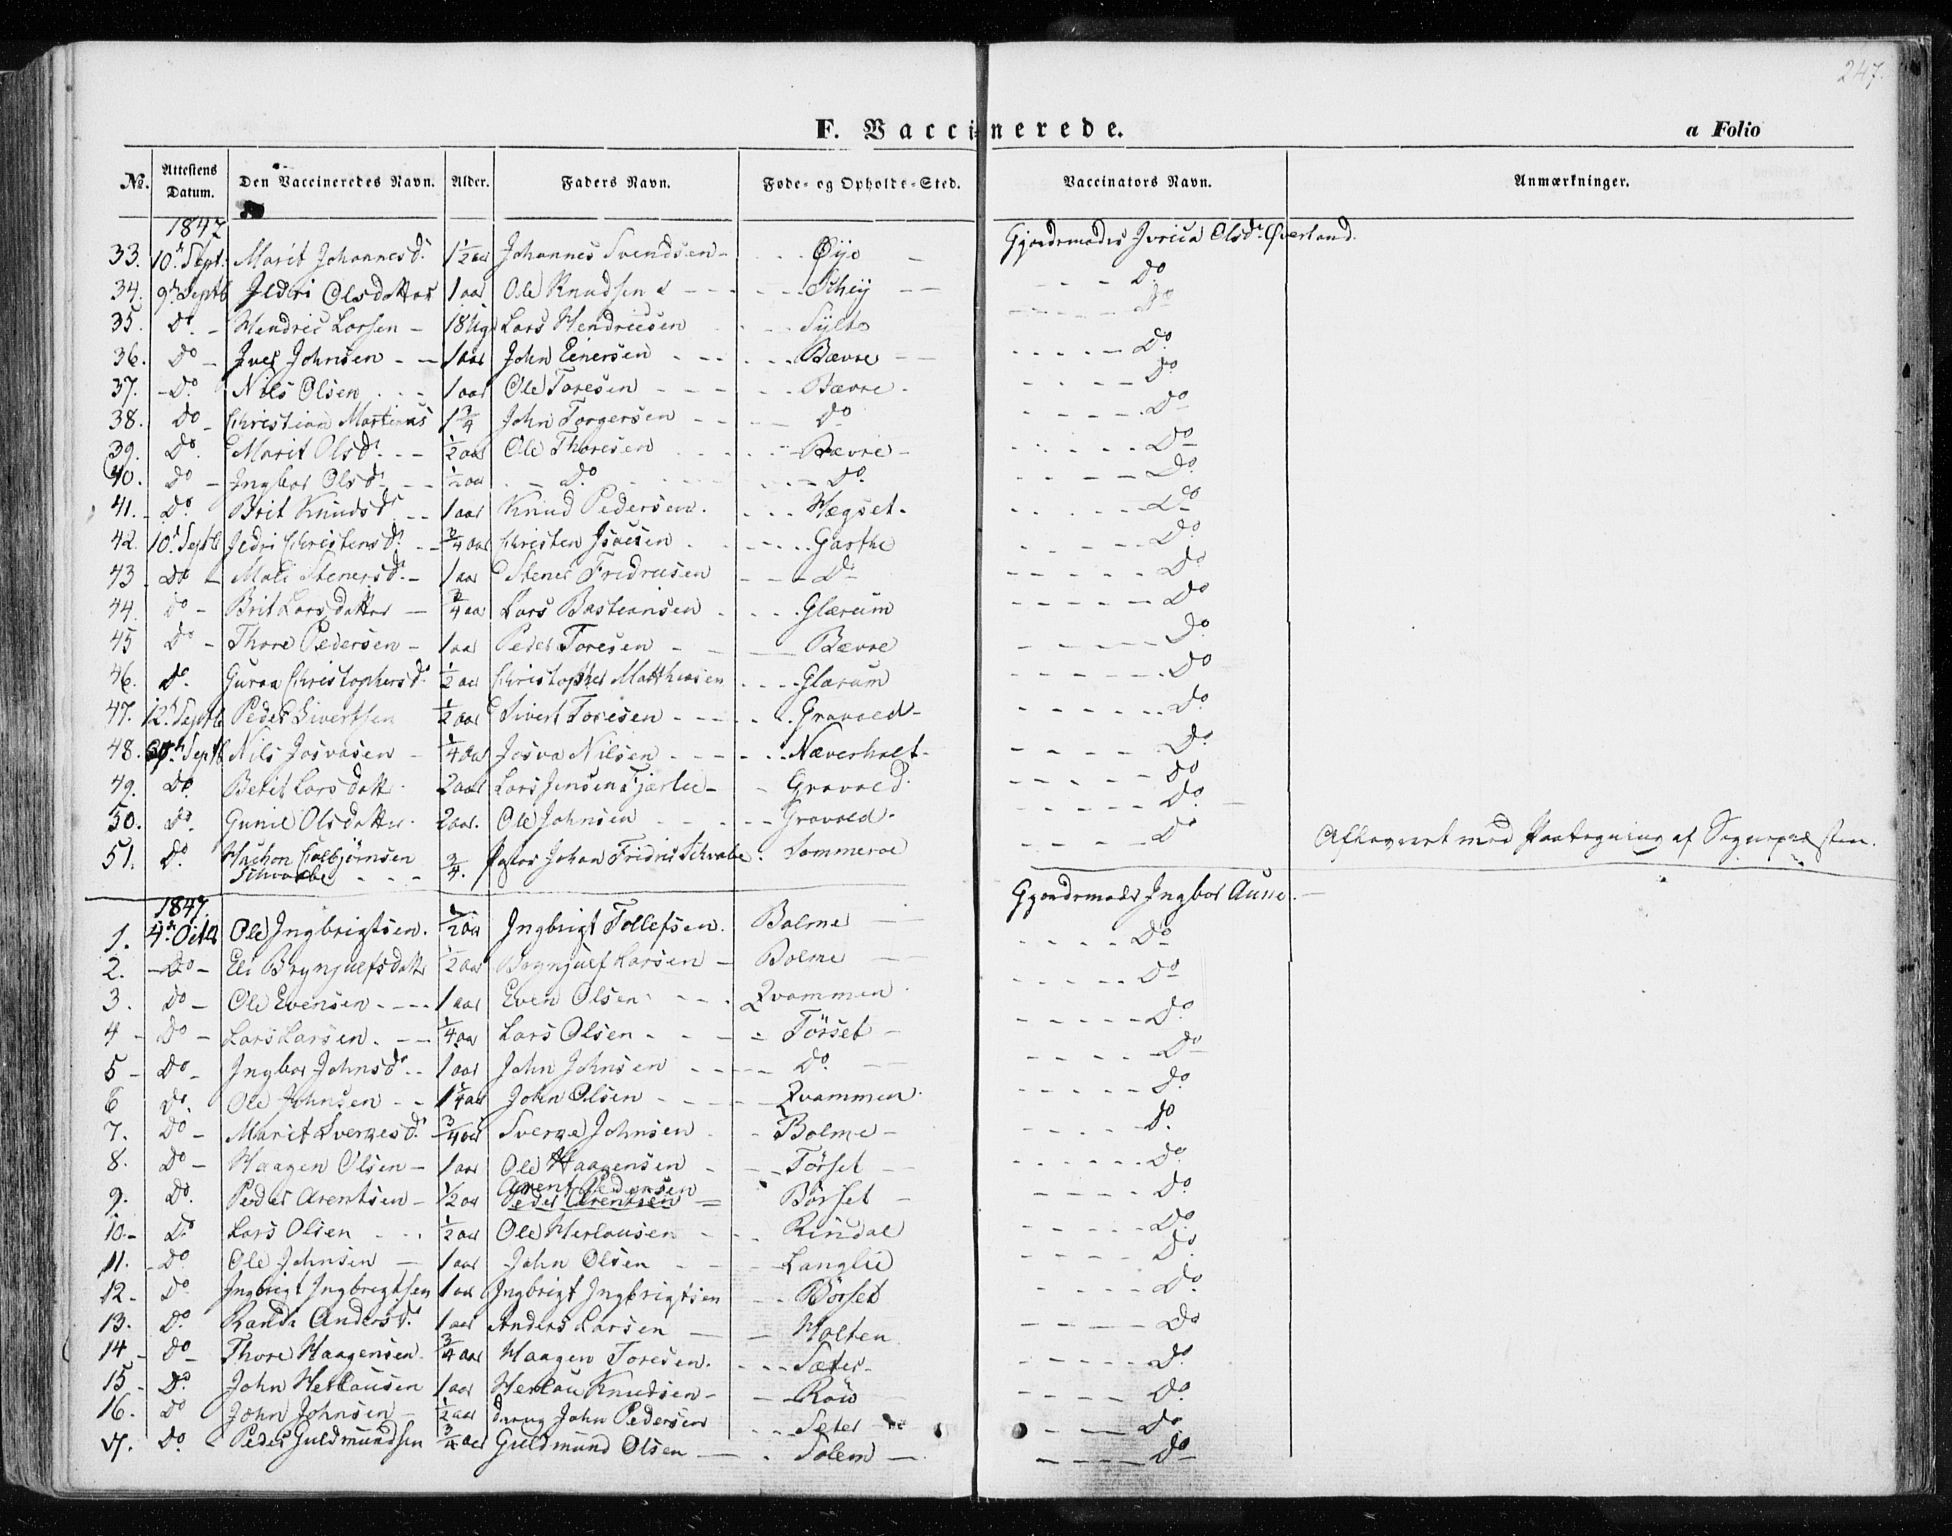 247.
F. Vaccinerede.
a Folio
No. Attestens Datum. Den Vaccineredes Navn. Alder. Faders Navn. Føde- og Opholds-Sted. Vaccinators Navn. Anmærkninger.
1847
33. 10d Sept. Marit Johannesdr 1½ aar Johannes Svendsen Öye Gjordemoder Olsdr Øverland.
34. 9d Septb Olsdatter 1 aar Ole Knudsen Schey Do
35. Do Hendric Larsen 18 Ug. Lars Hendricsen Sylte Do
36. Do Iver Johnsen 1 aar John Einersen Bævre Do
37. Do Nils Olsen 1 aar Ole Toresen Bævre Do
38. Do Christian Martinus 1¾ John Torgersen Do Do
39. Do Marit Olsdr ½ aar Ole Thoresen Bævre Do
40. Do Ingbor Olsdr ½ aar Do Do Do
41. Do Brit Knudsdr 1 aar Knud Pedersen Hægset Do
42. 10d Septb Christensdr ¾ aar Christen Isacsen Garthe Do
43 Do Mali Stenersdr 1 aar Stener Fredricsen Do Do
44. Do Brit Larsdatter ¾ aar Lars Bastiansen Glærum Do
45 Do Thore Pedersen 1 aar Peder Toresen Bævre Do
46. Do Guroa Christophersdr ½ aar Christopher Matthiasen Glærum Do
47. 12d Septb Peder Sivertsen ½ aar Sivert Toresen Gravold Do
48. Septb Nils Josvasen ¼ aar Josva Nilsen Næverholt Do
49. Do Berit Larsdatt 2 aar Lars Jensen Gravold Do
50. Do Gunil Olsdatter 2 aar. Ole Johnsen Gravold Do
51. Do Hachon Colbjörnsen Schwabe ¾. Pastor Johan Fridric Schwabe. Sommeroe Do Afleveret med Paategning af Sognepræsten.
1847
Gjordemoder Ingbor Aune
1. 4d Octbr Ole Ingbrigtsen. ½ aar Ingbrigt Tollefsen. Bolme Do
2. Do Eli Brynjulfsdatt ½ aar Brynjulf Larsen Bolme Do
3. Do Ole Evensen 1 aar Even Olsen Qvammen Do
4 Do Lars Larsen ¼ aar Lars Olsen Törset Do
5 Do Ingbor Johnsdr 1 aar John Johnsen Do Do
6 Do Ole Johnsen 1¼ aar John Olsen Qvammen Do
7. Do Marit Sverresdr ¾ aar Sverre Johnsen Bolme Do
8. Do Haagen Olsen 1 aar Ole Haagensen Törset Do
9. Do Peder Arentsen ½ aar Arent Pedersen Peder Arentsen Börset Do
10. Do Lars Olsen ½ aar Ole Herlousen Rindal Do
11. Do Ole Johnsen 1 aar John Olsen Langlie Do
12 Do Ingbrigt Ingbrigtsen 1 aar Ingbrigt Ingbrigtsen Börset Do
13. Do Randi Andersdr 1 aar Anders Larsen Holten Do
14 Do Thore Haagensen ¾ aar Haagen Toresen Sæter Do
15 Do John Herlousen 1 aar Herlou Knudsen Do
16. Do John Johnsen ½ aar John Pedersen Sæter Do
17. Do Peder Guldmundsen ¾ aar Guldmund Olsen Solem Do